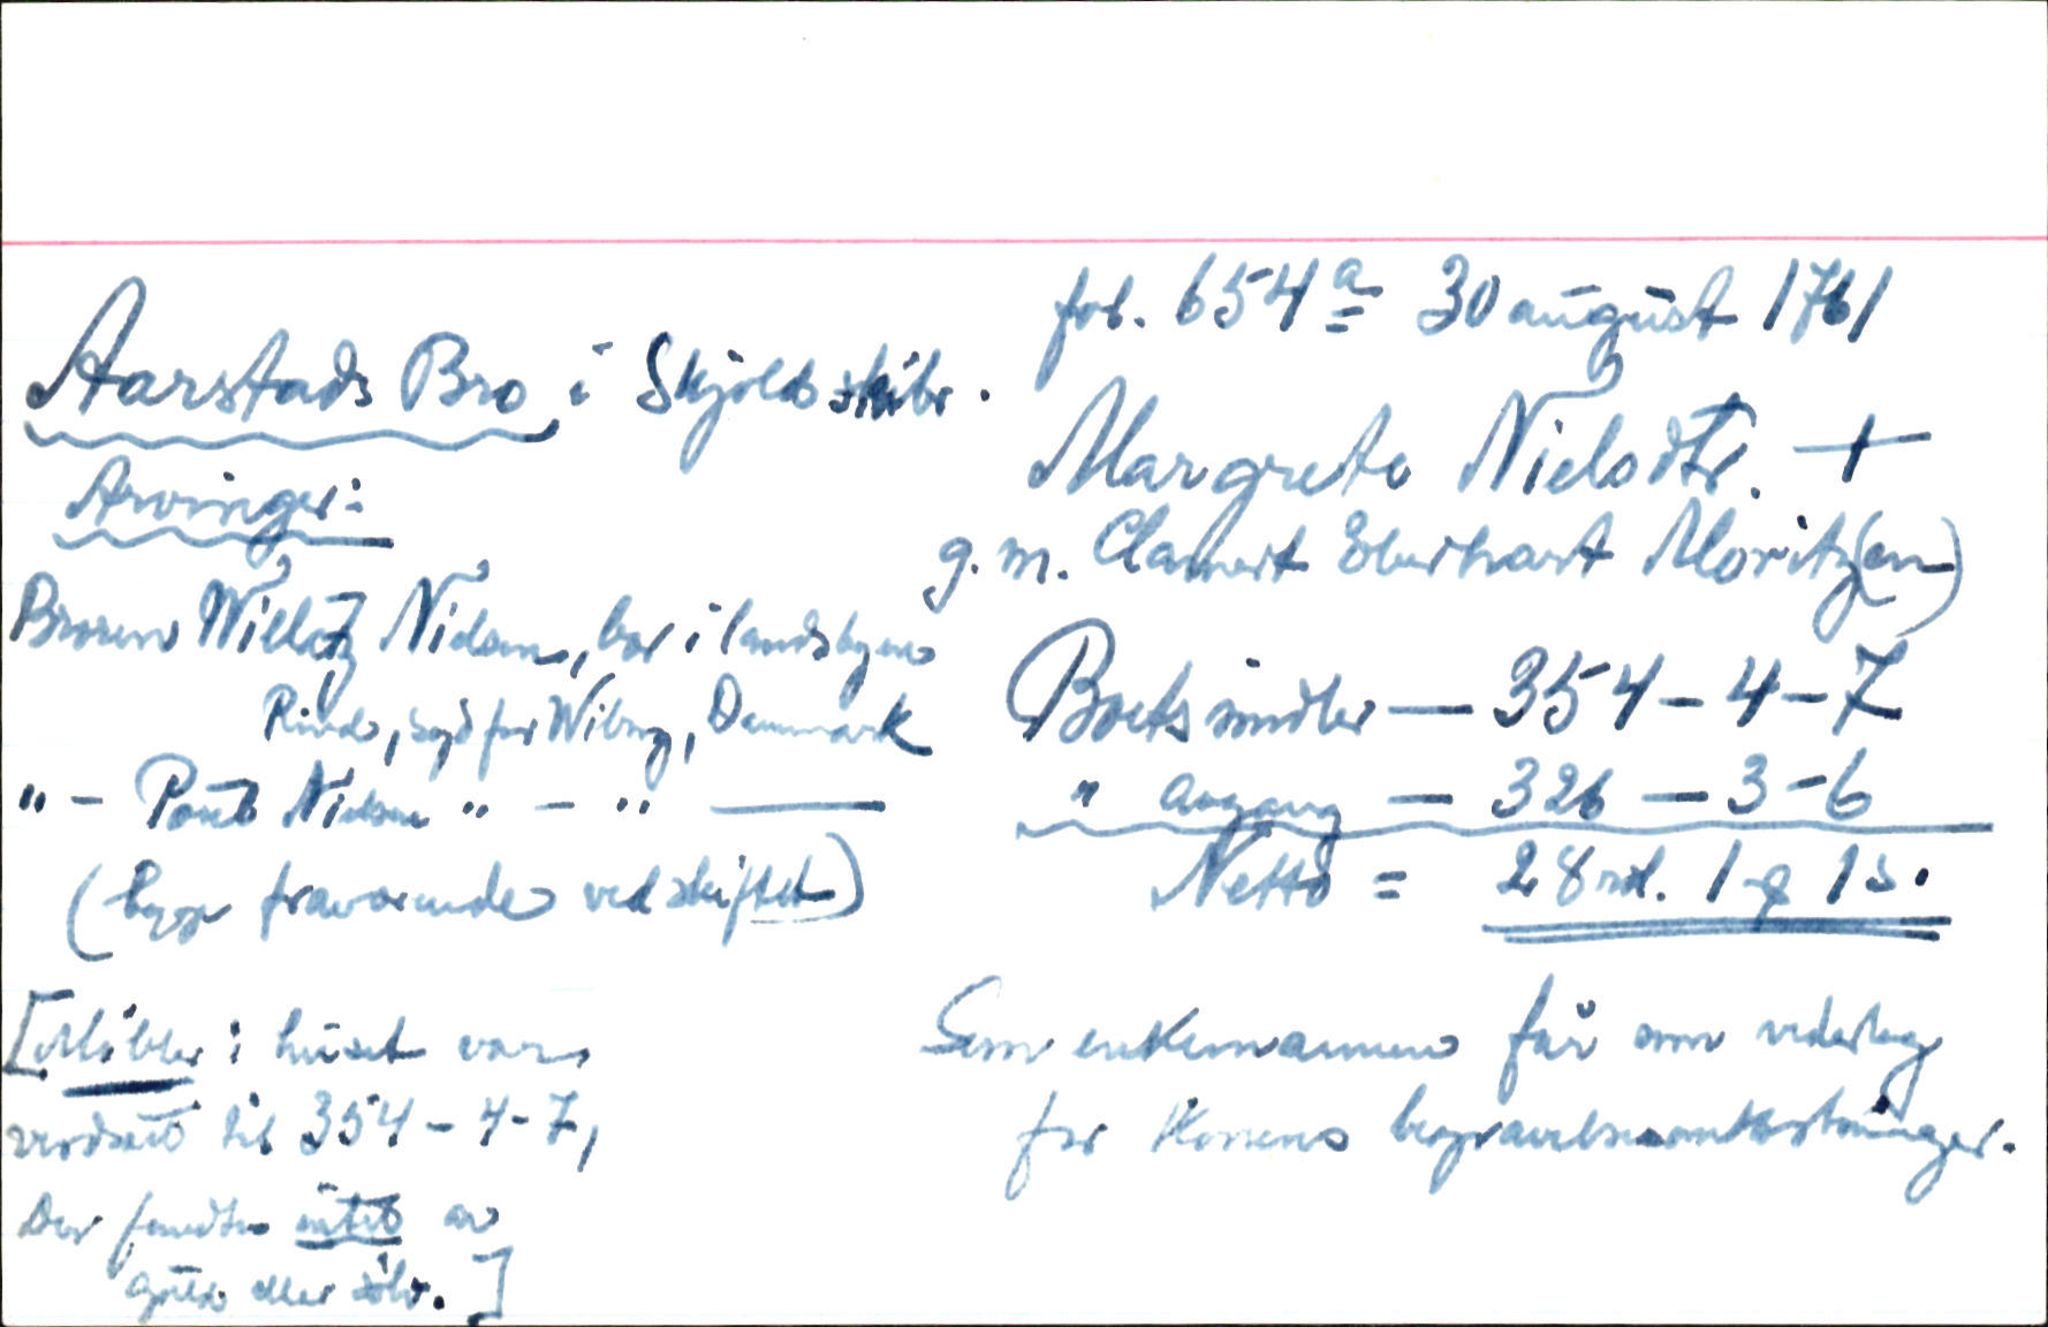 fol. 654ª 30 august 1761
Aarstads Bro i Skjolds skibr.
Margrete Nielsdtr. +
g.m. Clamert Eberhart Moritz(en)
Arvinger:
Broren Willatz Nielsen, bor i landsbyen
Rind, syd for Wiborg, Danmark
" - Poul Nielsen " - " —
(begge fraværende ved skiftet)
Boets midler — 354 - 4 - 7
" avgang — 326 — 3 - 6
Netto = 28 rd. 1 q 1 s.
[Møbler i huset var
verdsatt til 354 - 4 - 7,
Der fandtes intet av
gull eller sølv.]
Som enkemannen får som vederlag
for konens begravelsesomkostninger.